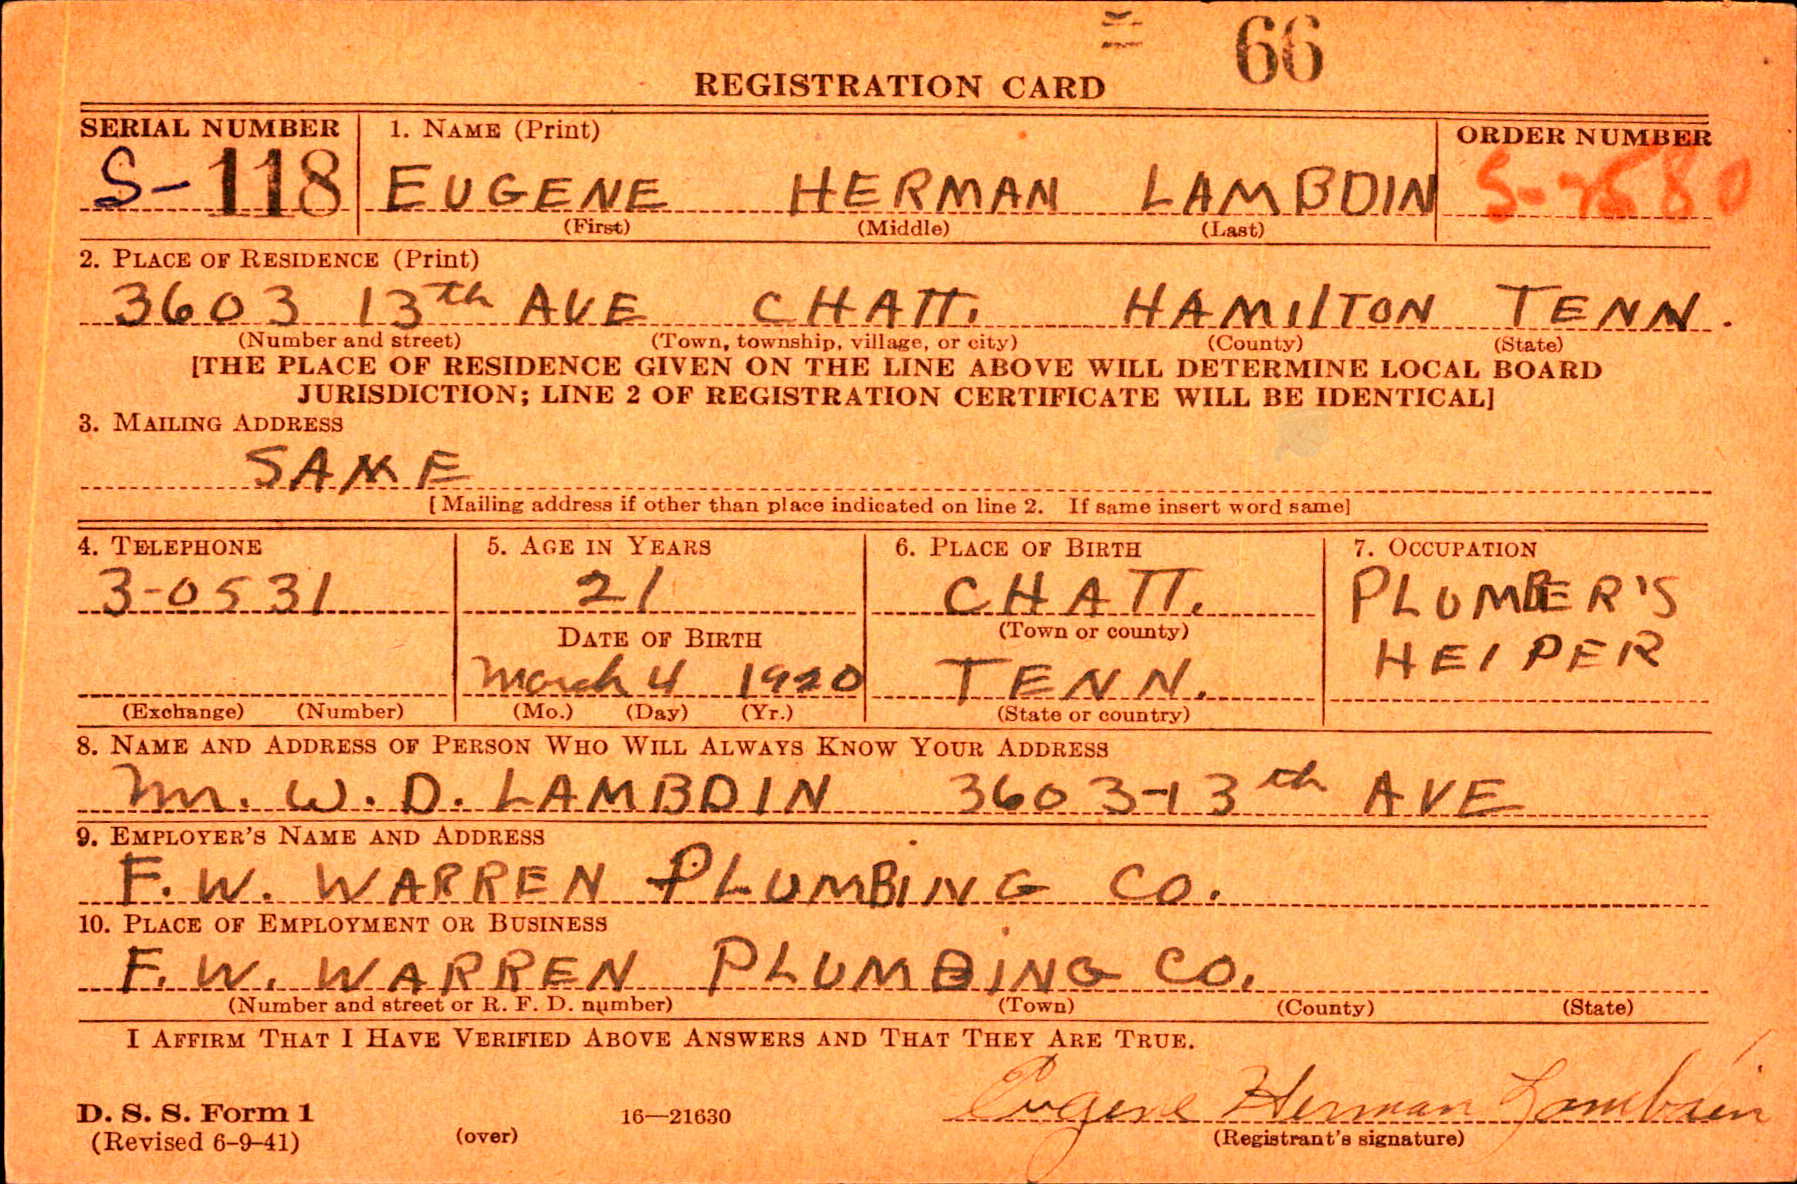 66
REGISTRATION CARD
SERIAL NUMBER 1. NAME (Print) ORDER NUMBER
S-118 EUGENE HERMAN LAMBDIN S-7580
(First) (Middle) (Last)
2. PLACE OF RESIDENCE (Print)
3603 13th AVE CHATT. HAMILTON TENN.
(Number and street) (Town, township, village, or city) (County) (State)
[THE PLACE OF RESIDENCE GIVEN ON THE LINE ABOVE WILL DETERMINE LOCAL BOARD
JURISDICTION; LINE 2 OF REGISTRATION CERTIFICATE WILL BE IDENTICAL]
3. MAILING ADDRESS
SAME
[Mailing address if other than place indicated on line 2. If same insert word same]
4. TELEPHONE 5. AGE IN YEARS 6. PLACE OF BIRTH 7. OCCUPATION
3-0531 21 CHATT. PLUMBER'S
DATE OF BIRTH (Town or county) HELPER
March 4 1920 TENN.
(Exchange) (Number) (Mo.) (Day) (Yr.) (State or country)
8. NAME AND ADDRESS OF PERSON WHO WILL ALWAYS KNOW YOUR ADDRESS
Mr. W. D. LAMBDIN 3603-13th AVE
9. EMPLOYER'S NAME AND ADDRESS
F. W. WARREN PLUMBING CO.
10. PLACE OF EMPLOYMENT OR BUSINESS
F. W. WARREN PLUMBING CO.
(Number and street or R. F. D. number) (Town) (County) (State)
I AFFIRM THAT I HAVE VERIFIED ABOVE ANSWERS AND THAT THEY ARE TRUE.
Eugene Herman Lambdin
D. S. S. Form 1 16—21630
(Revised 6-9-41) (over) (Registrant's signature)